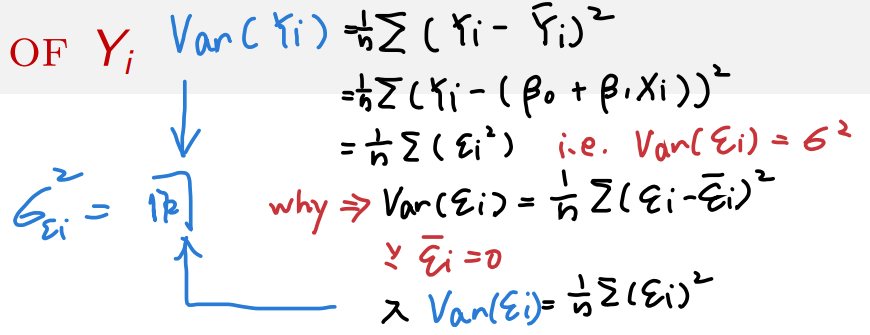 OF Yi Var(Yi) = 1/n Σ (Yi - Ȳi)²
= 1/n Σ (Yi - (β₀ + β₁Xi))²
= 1/n Σ (εi²) i.e. Var(εi) = σ²
σ²εi =
why ⇒ Var(εi) = 1/n Σ (εi - ε̄i)²
ε̄i = 0
Var(εi) = 1/n Σ (εi)²